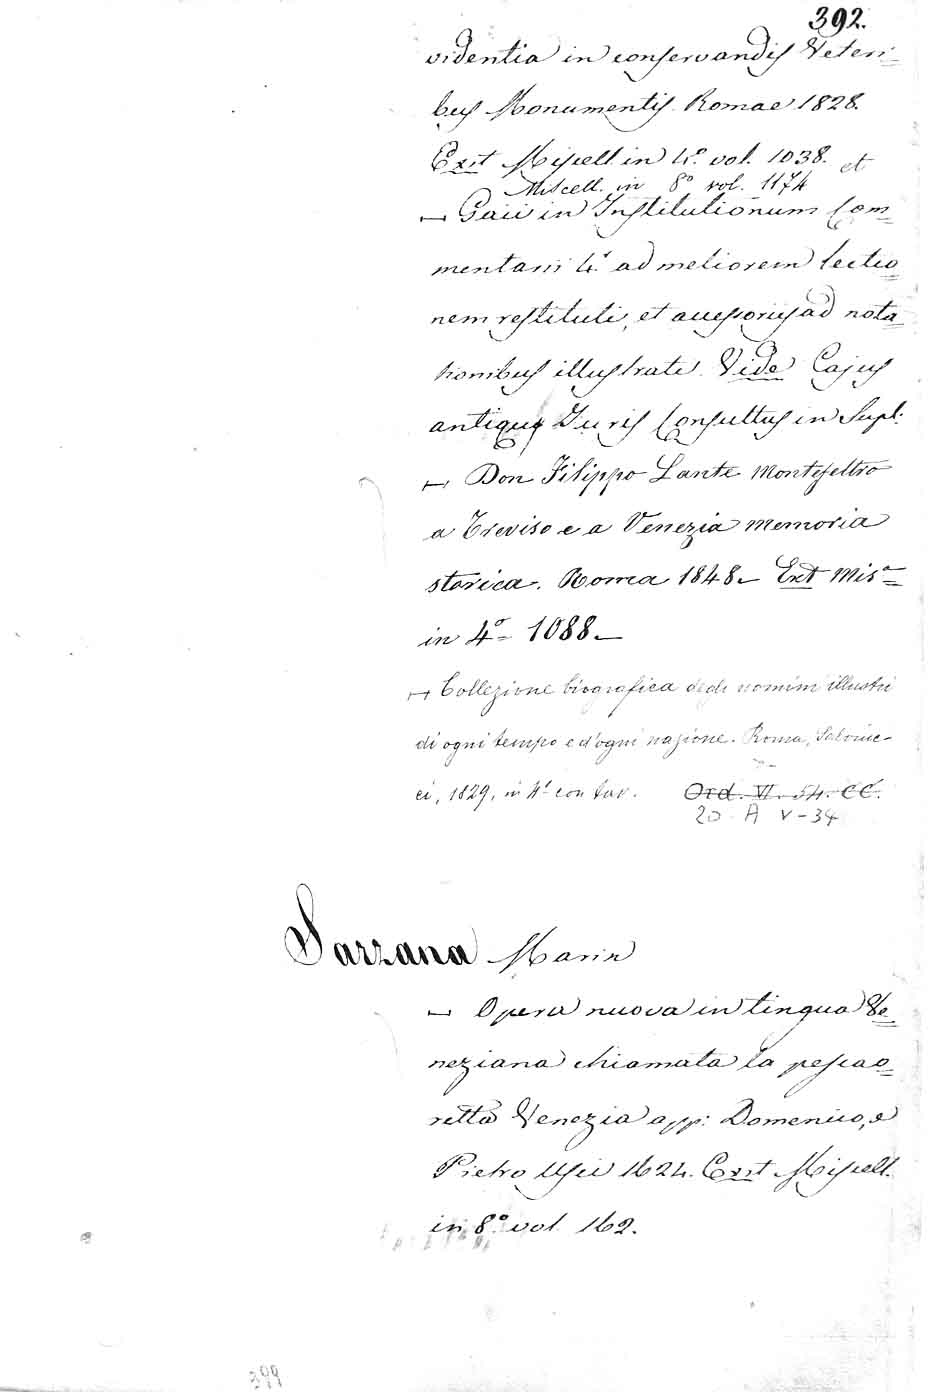 392.
videntia in conservandis Veteri=
bus Monumentis Romae 1828.
Exst Miscell. in 4.º vol. 1038. et
Miscell. in 8º vol. 1174
— Gaii in Institutionum Com=
mentarii 4.r ad meliorem lectio=
nem restituti, et accessoriis ad nota=
tionibus illustrati. Vide Cajus
antiquus Juris Consultus in Supl:
— Don Filippo Lante Montefeltro
a Treviso e a Venezia memoria
storica. Roma 1848— Ext Misa=
in 4º= 1088—
— Collezione biografica degli uomini illustri
di ogni tempo e d'ogni nazione. Roma, Salviuc-
ci, 1829, in 4º con tav. Ord. VI. 54. CC.
20 A V-34
Sarzana Marin
— Opera nuova in lingua Ve=
neziana chiamata la pescao=
retta Venezia app: Domenico, e
Pietro Usci 1624. Exst Miscell.
in 8.º vol. 162.
399